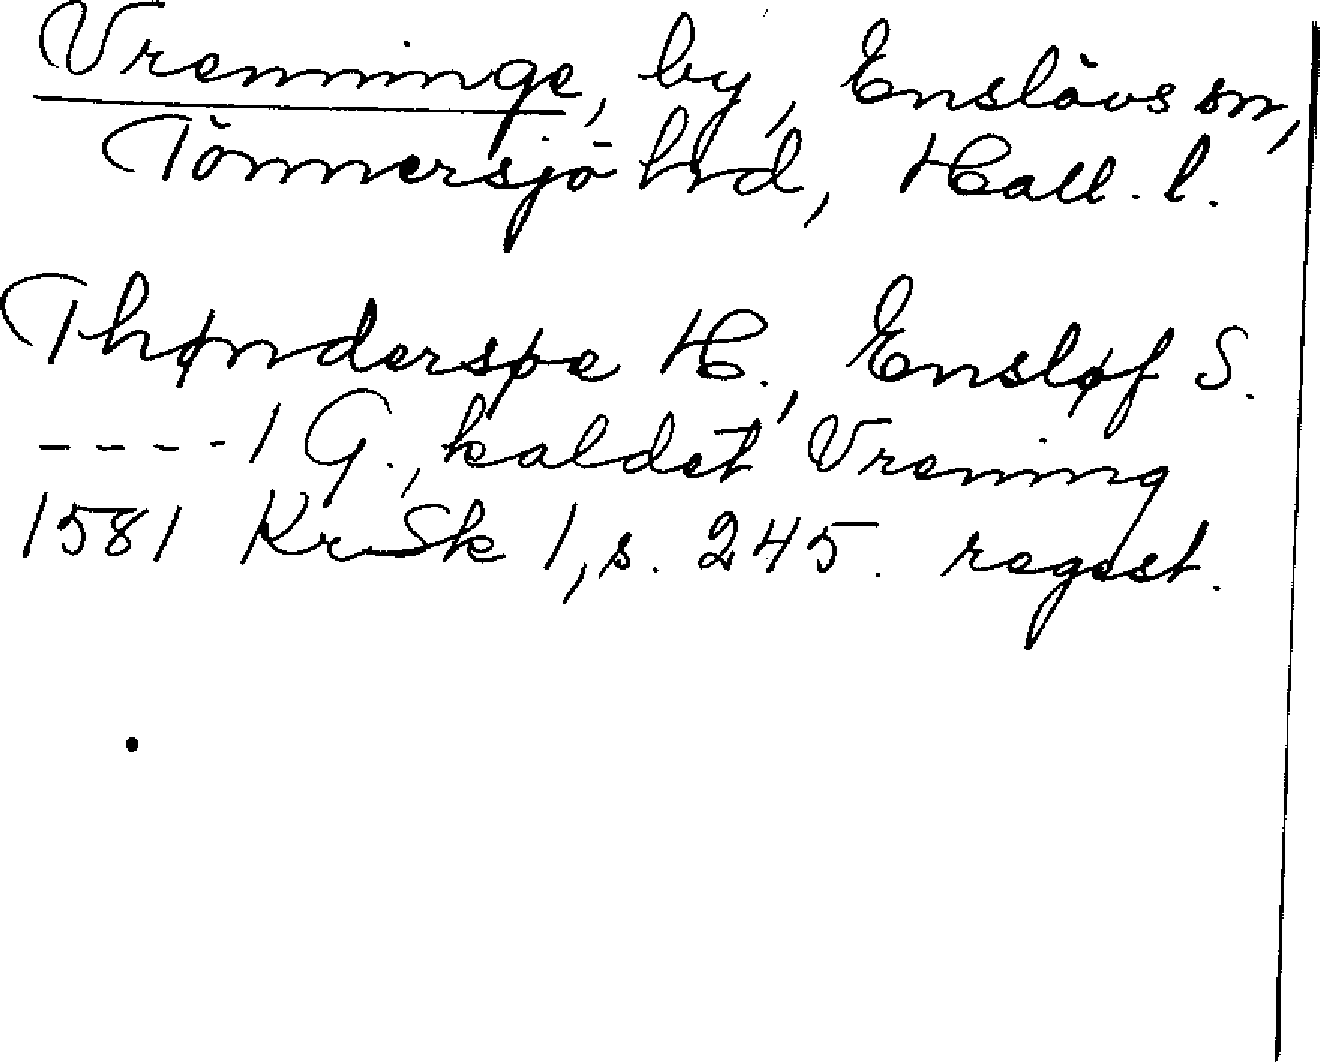 Vrenninge, by, Enslövs sn,
Tönnersjö hrd, Hall. l.
Thønderspe H., Ensløf S.
---- 1 G., kaldet Vrening
1581 KrSk 1, s. 245. regest.